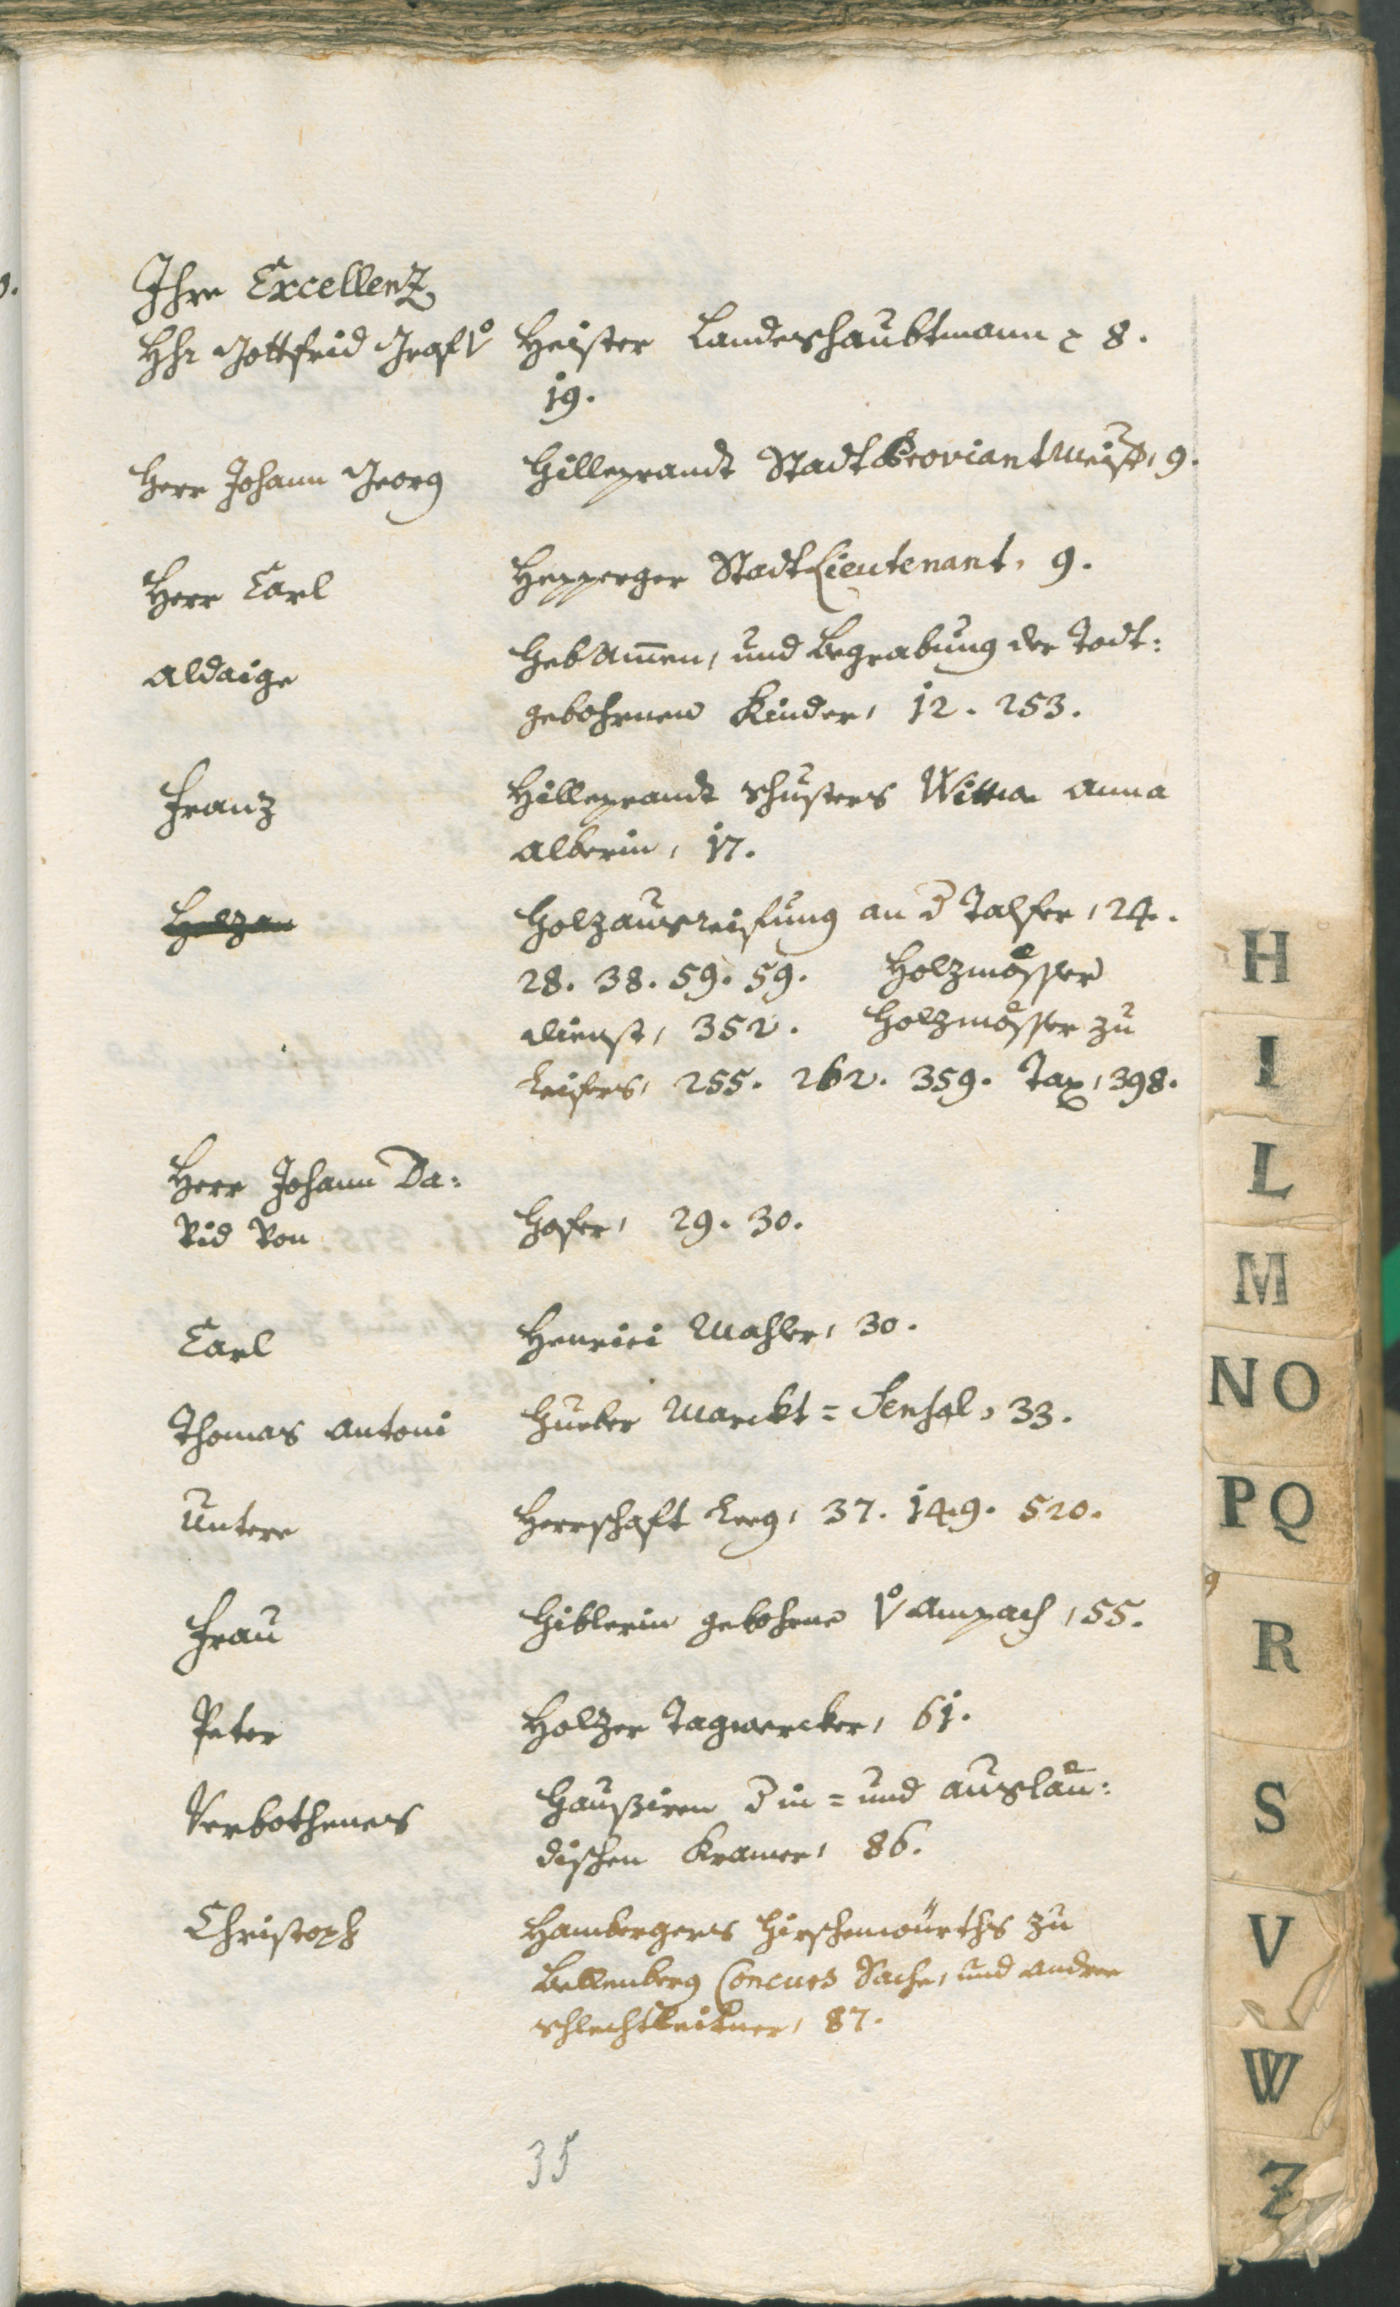 Ihre Excellenz
Hhr Gottfrid Graf v Heister Landeshaubtmann 8.
19.
Herr Johann Georg Hilleprandt Stadt Proviantmeist, 9.
Herr Carl Hepperger Stadt Lieutenant, 9.
Aldaige HebAmen, und Begrabung der Todt=
gebohrnen Kinder, 12. 253.
Franz Hilleprandt Schusters Wittwe Anna
Alberin, 17.
Holzausreisung an d Talfer, 24.
28. 38. 59. 59. Holzmösser
dienst, 352. Holzmösser zu
Leifers, 255. 262. 359. Tax, 398.
Herr Johann Da=
vid von Hofer, 29. 30.
Carl Henrici Mahler, 30.
Thomas Antoni Hueber Marckt = Sensal, 33.
Untere Herrschaft Leeg, 37. 149. 520.
Frau Hiblerin gebohrne v Ampach, 55.
Peter Holzer Tagwercker, 61.
Verbothenes Haußiren d in = und auslän=
dischen Kramer, 86.
Christoph Hambergers Hirschenwürths zu
Bellenberg Concurs Sache, und Andree
Schlechtleitner, 87.
35
H
I
L
M
N O
P Q
R
S
V
W
Z